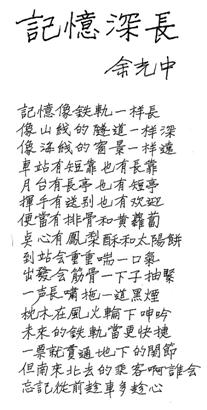 記憶深長
余光中
記憶像鉄軌一样長
像山线的隧道一样深
像海线的窗景一样遠
車站有短靠也有長靠
月台有長亭也有短亭
揮手有送别也有欢迎
便當有排骨和黄蘿蔔
点心有鳳梨酥和太陽餅
到站会重重喘一口氣
出發会筋骨一下子抽緊
一声長嘯拖一道黑煙
枕木在風火輪下呻吟
未來的鉄軌當更快捷
一票就貫通地下的関節
但南來北去的乘客啊誰会
忘記從前途車多途心